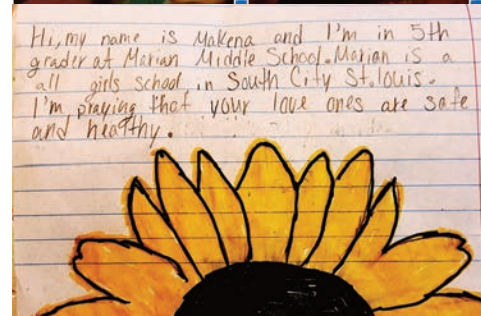 Hi, my name is Makena and I'm in 5th
grader at Marian Middle School. Marian is a
all girls school in South City St. louis.
I'm praying that your love ones are safe
and healthy.